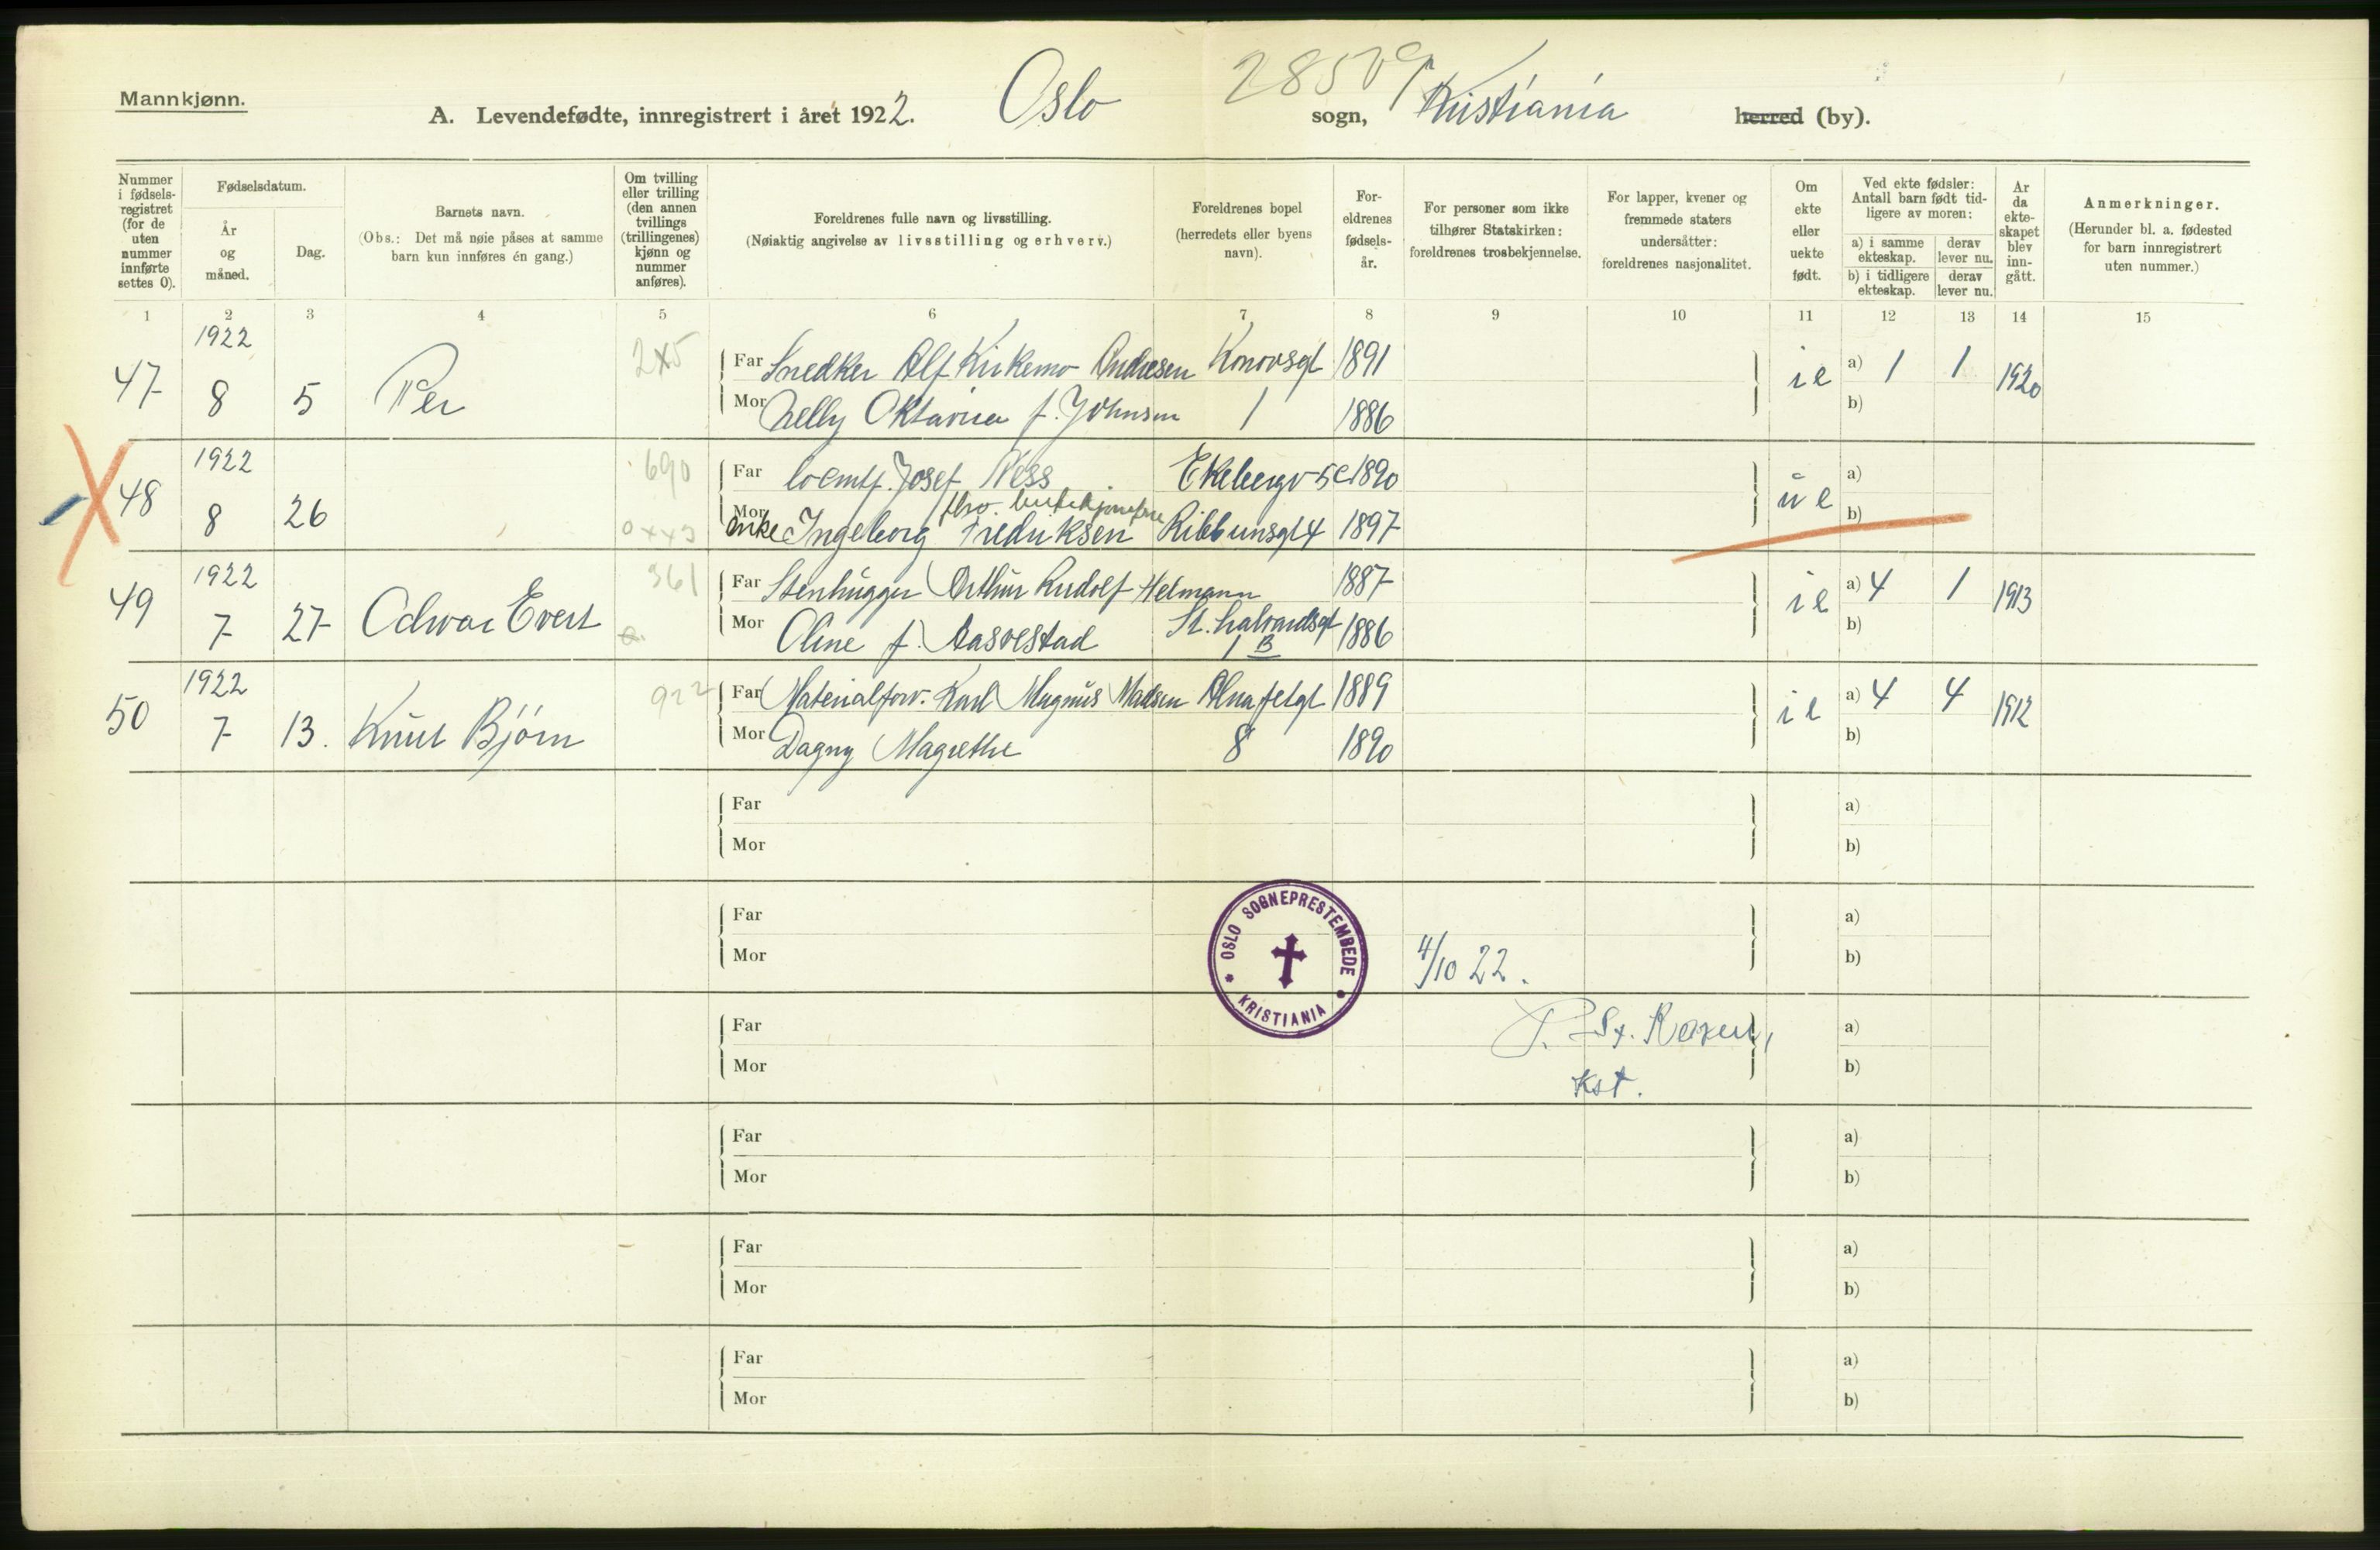 Mannkjønn.
28509
A. Levendefødte, innregistrert i året 1922. Oslo sogn, Kristiania herred (by).
Nummer i fødsels-registret (for de uten nummer innførte settes 0).
Fødselsdatum.
År og måned.
Dag.
Barnets navn.
(Obs.: Det må nøie påses at samme barn kun innføres én gang.)
Om tvilling eller trilling (den annen tvillings (trillingenes) kjønn og nummer anføres).
Foreldrenes fulle navn og livsstilling.
(Nøiaktig angivelse av livsstilling og erhverv.)
Foreldrenes bopel (herredets eller byens navn).
For-eldrenes fødsels-år.
For personer som ikke tilhører Statskirken: foreldrenes trosbekjennelse.
For lapper, kvener og fremmede staters undersåtter: foreldrenes nasjonalitet.
Om ekte eller uekte født.
Ved ekte fødsler: Antall barn født tid-ligere av moren:
a) i samme ekteskap.
derav lever nu.
b) i tidligere ekteskap.
derav lever nu.
Ar da ekte-skapet blev inn-gått.
Anmerkninger.
(Herunder bl. a. fødested for barn innregistrert uten nummer.)
1 2 3 4 5 6 7 8 9 10 11 12 13 14 15
1922
47 8 5 Per
Far Snedker Alf Kirkemo Andresen Konovsgt 1891 ie a) 1 1 1920
Mor Nelly Oktavia f. Johnsen 1 1886 b)
1922 690
48 8 26
Far Josef Ness Ekebergv 5c 1890 ue a)
Mor enke Ingeborg Fredriksen Ribbunsgt 4 1897 b)
1922 361
49 7 27 Odvar Evert
Far Stenhugger Arthur Rudolf Helmann 1887 ie a) 4 1 1913
Mor Oline f. Aasvestad St. Halvardsgt 1 B 1886 b)
1922 922
50 7 13. Knut Bjørn
Far Materialforv. Karl Magnus Madsen Alnafetgt 1889 ie a) 4 4 1912
Mor Dagny Magrethe 8 1890 b)
Far a)
Mor b)
Far a)
Mor b)
OSLO SOGNEPRESTEMBEDE
KRISTIANIA
4/10 22.
Far a)
Mor b)
kst.
Far a)
Mor b)
Far a)
Mor b)
Far a)
Mor b)